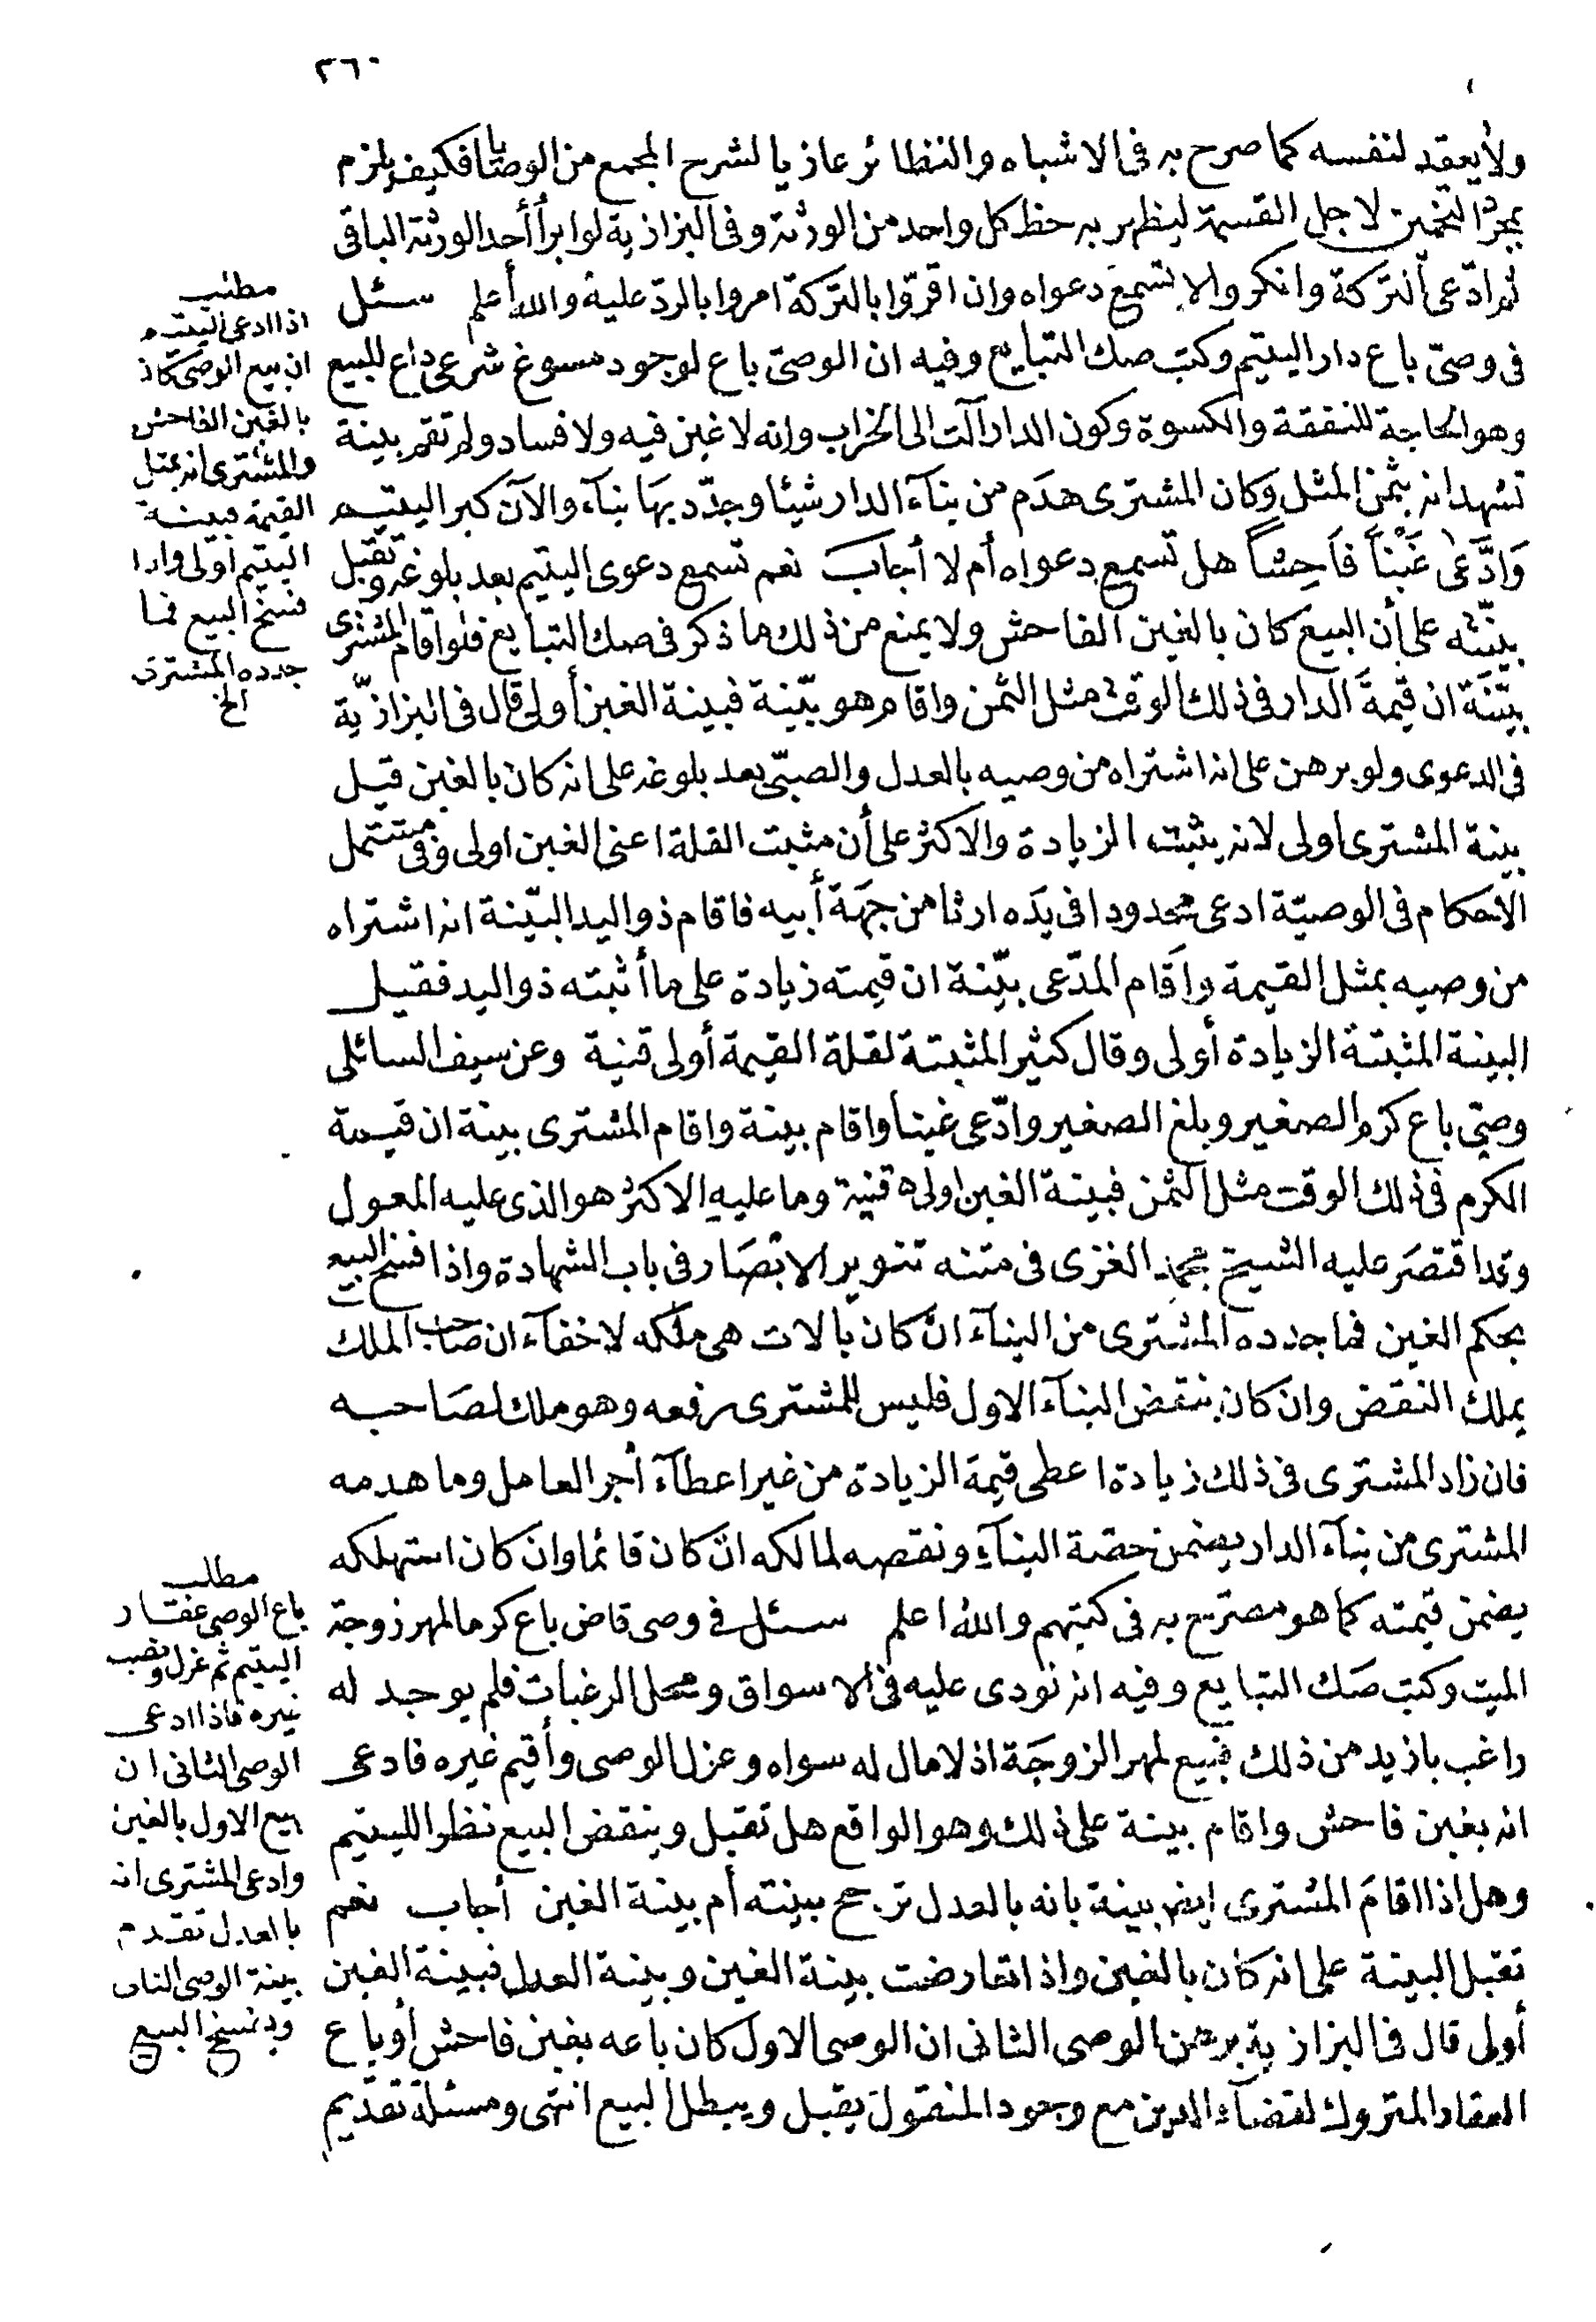 ٢٦٠
ولا يعقد لنفسه كما صرح به فى الاشباه والنظائر عازيا لشرح المجمع من الوصايا فكيف يلزم
بمجرد التخمين لاجل القسمة ليظهر به حظ كل واحد من الورثة وفى البزازية لو ابرأ أحد الورثة الباقى
ثم ادّعى التركة وانكروا لا تسمع دعواه وان اقرّوا بالتركة امروا بالردّ عليه والله أعلم سئل
فى وصىّ باع دار اليتيم وكتب صك التبايع وفيه ان الوصىّ باع لوجود مسوغ شرعى داع للبيع
وهو الحاجة للنفقة والكسوة وكون الدار آلت الى الخراب وانه لا غبن فيه ولا فساد ولم تقم بينة
تشهد انه بثمن المثل وكان المشترى هدم من بناء الدار شيئا وجدّد بها بناء والآن كبر اليتيم
وَادَّعَى غَبْناً فَاحِشاً هل تسمع دعواه أم لا أجاب نعم تسمع دعوى اليتيم بعد بلوغه وتقبل
بيّنته على أن البيع كان بالغبن الفاحش ولا يمنع من ذلك ما ذكر فى صك التبايع فلو اقام المشترى
بيّنة ان قيمة الدار فى ذلك الوقت مثل الثمن واقام هو بيّنة فبينة الغبن أولى قال فى البزازيّة
فى الدعوى ولو برهن على انه اشتراه من وصيه بالعدل والصبىّ بعد بلوغه على انه كان بالغبن قيل
بينة المشترى اولى لانه يثبت الزيادة والاكثر على أن مثبت القلة اعنى الغبن اولى وفى مشتمل
الاحكام فى الوصيّة ادعى محدودا فى يده ارثا من جهة أبيه فاقام ذو اليد البيّنة انه اشتراه
من وصيه بمثل القيمة واقام المدّعى بيّنة ان قيمته زيادة على ما أثبته ذو اليد فقيل
البينة المثبتة الزيادة أولى وقال كثير المثبتة لقلة القيمة أولى قنية وعن سيف السائلى
وصىّ باع كرم الصغير وبلغ الصغير وادّعى غبنا واقام بينة واقام المشترى بينة ان قيمة
الكرم فى ذلك الوقت مثل الثمن فبينة الغبن اولى ه قنية وما عليه الاكثر هو الذى عليه المعول
وقد اقتصر عليه الشيخ محمد الغزى فى متنه تنوير الابصار فى باب الشهادة واذا فسخ البيع
بحكم الغبن فما جدده المشترى من البناء ان كان بالات هى ملكه لا خفاء ان صاحب الملك
يملك النقض وان كان بنقض البناء الاول فليس للمشترى رفعه وهو ملك لصاحبه
فان زاد المشترى فى ذلك زيادة اعطى قيمة الزيادة من غير اعطاء أجر العامل وما هدمه
المشترى من بناء الدار يضمن حصة البناء ونقضه لمالكه ان كان قائما وان كان استهلكه
يضمن قيمته كما هو مصرّح به فى كتبهم والله اعلم سئل فى وصى قاض باع كرما لمهر زوجة
الميت وكتب صك التبايع وفيه انه نودى عليه فى الاسواق ومحل الرغبات فلم يوجد له
راغب بازيد من ذلك فبيع لمهر الزوجة اذ لا مال له سواه وعزل الوصى وأقيم غيره فادعى
انه بغبن فاحش واقام بينة على ذلك وهو الواقع هل تقبل وينقض البيع نظرا لليتيم
وهل اذا اقام المشترى ايضا بينة بانه بالعدل ترجح بينته أم بينة الغبن أجاب نعم
تقبل البينة على انه كان بالغبن واذا تعارضت بينة الغبن وبينة العدل فبينة الغبن
أولى قال فى البزازية برهن الوصى الثانى ان الوصى الاول كان باعه بغبن فاحش أو باع
العقار المتروك لقضاء الدين مع وجود المنقول يقبل ويبطل البيع انتهى ومسئلة تقديم
مطلب
اذا ادعى اليتيم
ان بيع الوصى كان
بالغبن الفاحش
والمشترى انه بمثل
القيمة فبينة
اليتيم اولى واذا
فسخ البيع فما
جدده المشترى
الخ
مطلب
باع الوصى عقار
اليتيم ثم عزل ونصب
غيره فاذا ادعى
الوصى الثانى ان
بيع الاول بالغبن
وادعى المشترى انه
بالعدل تقدم
بينة الوصى الثانى
ويفسخ البيع